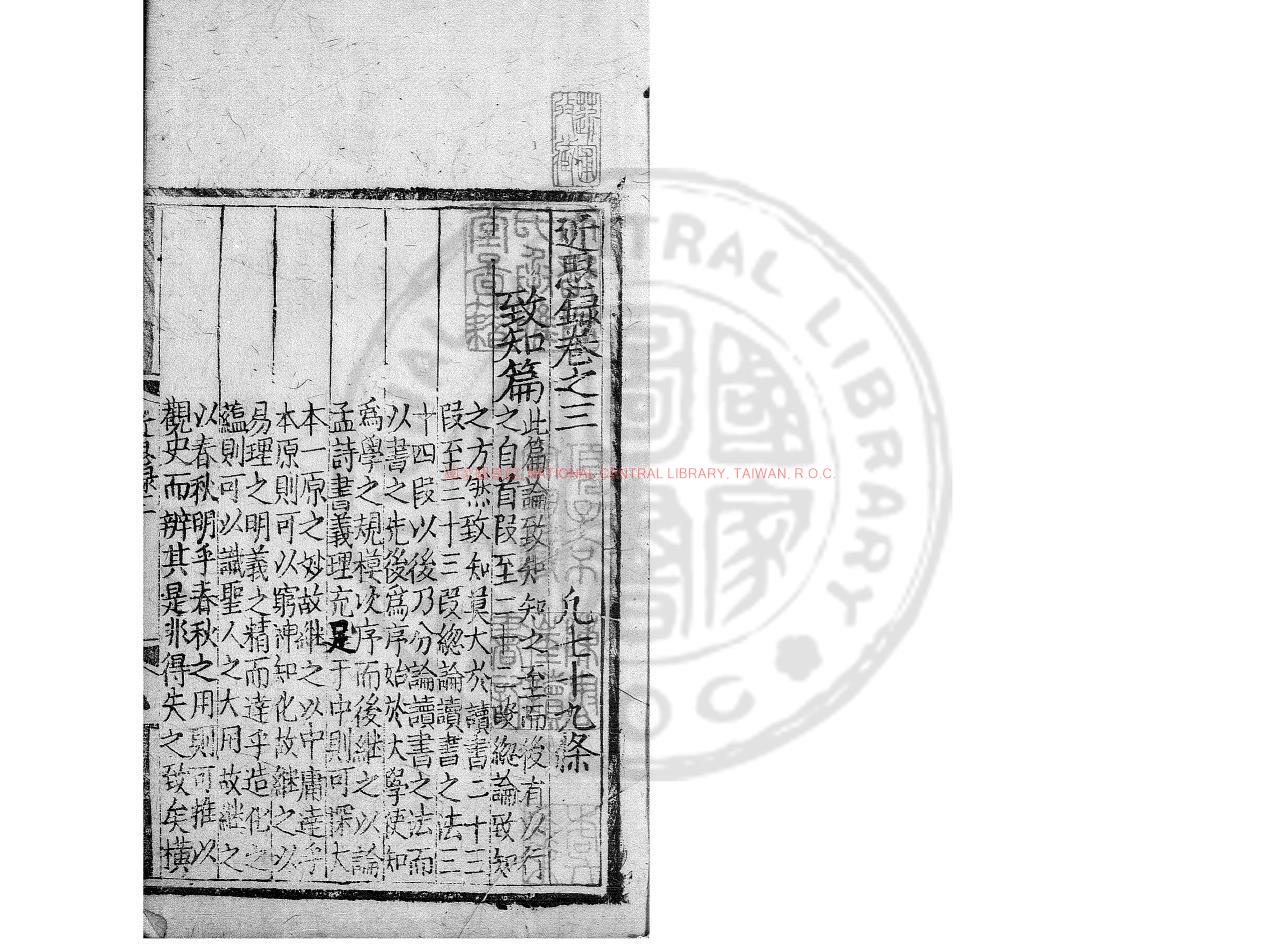 近思録卷之三 凢七十九条
致知篇
此篇論致知知之至而後有以行
之自首叚至二十二叚緫論致知
之方然致知莫大於讀書二十三
叚至三十三叚緫論讀書之法三
十四叚以後乃分論讀書之法而
以書之先後爲序始於大學使知
爲學之規模次序而後継之以論
孟詩書義理充足于中則可探大
本一原之妙故継之以中庸達乎
本原則可以窮神知化故継之以
易理之明義之精而達乎造化之
蘊則可以識聖人之大用故継之
以春秋明乎春秋之用則可推以
觀史而辨其是非得失之致矣橫
NATIONAL CENTRAL LIBRARY, TAIWAN, R.O.C.